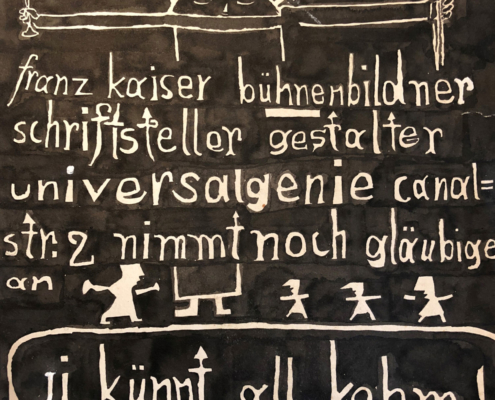 franz kaiser bühnenbildner
schriftsteller gestalter
universalgenie canal=
str. 2 nimmt noch gläubige
an
ji künnt all kahm!